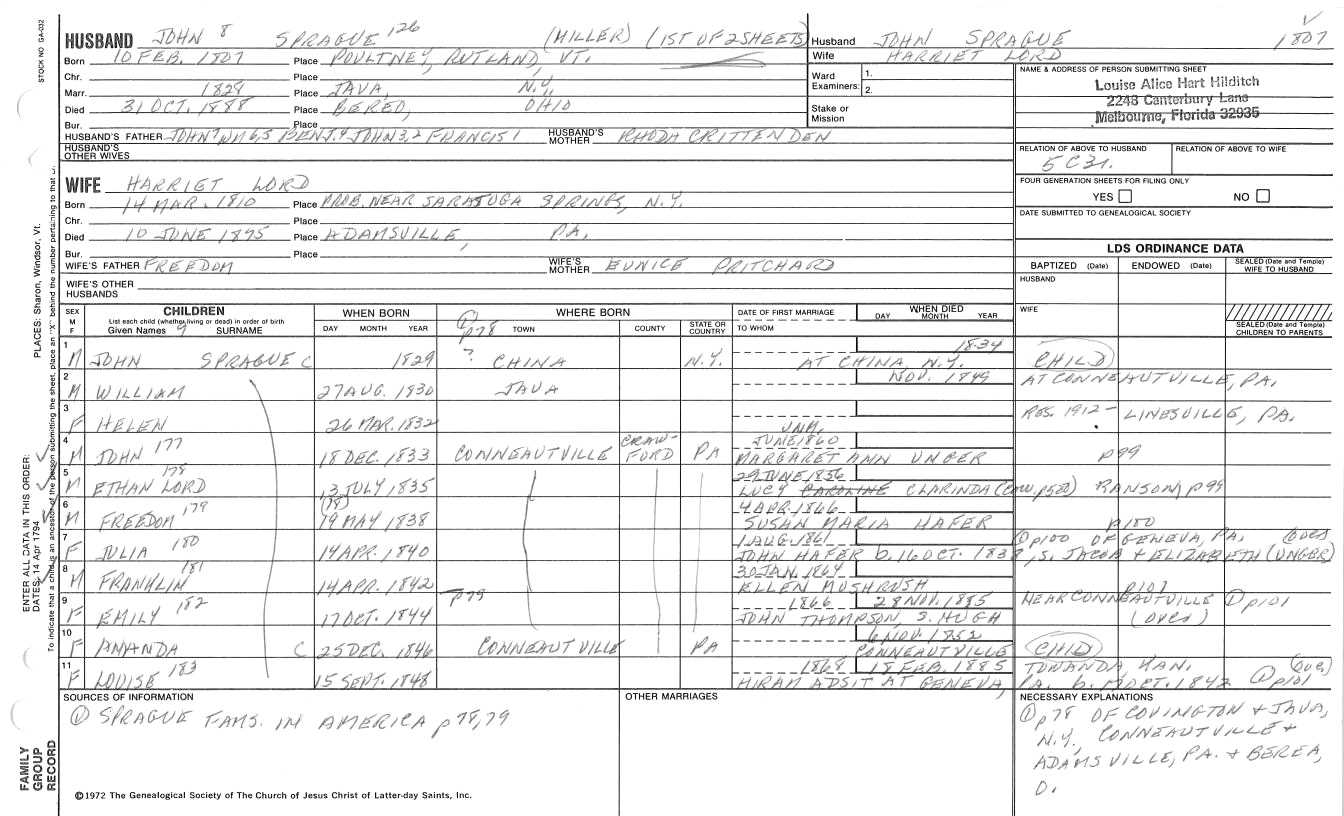 STOCK NO. GA-032
HUSBAND JOHN 8 SPRAGUE 126 (MILLER) (1ST OF 2 SHEETS)
Born 10 FEB. 1807 Place POULTNEY, RUTLAND, VT.
Chr. Place
Marr. 1828 Place JAVA, N.Y.
Died 31 OCT. 1888 Place BERED, OHIO
Bur. Place
HUSBAND'S FATHER JOHN 7 WM 6,5 BENJ. 4 JOHN 3,2 FRANCIS 1 HUSBAND'S MOTHER RHODA CRITTENDEN
HUSBAND'S OTHER WIVES
Husband JOHN SPRAGUE 1807
Wife HARRIET LORD
Ward Examiners: 1.
2.
Stake or Mission
NAME & ADDRESS OF PERSON SUBMITTING SHEET
Louise Alice Hart Hilditch
2248 Canterbury Lane
Melbourne, Florida 32935
RELATION OF ABOVE TO HUSBAND RELATION OF ABOVE TO WIFE
5C3r.
FOUR GENERATION SHEETS FOR FILING ONLY
YES NO
DATE SUBMITTED TO GENEALOGICAL SOCIETY
WIFE HARRIET LORD
Born 14 MAR. 1810 Place PROB. NEAR SARATOGA SPRINGS, N.Y.
Chr. Place
Died 10 JUNE 1875 Place ADAMSVILLE, PA.
Bur. Place
WIFE'S FATHER FREEDOM WIFE'S MOTHER EUNICE PRITCHARD
WIFE'S OTHER HUSBANDS
LDS ORDINANCE DATA
BAPTIZED (Date) ENDOWED (Date) SEALED (Date and Temple) WIFE TO HUSBAND
HUSBAND
WIFE
SEALED (Date and Temple) CHILDREN TO PARENTS
SEX M F CHILDREN WHEN BORN WHERE BORN DATE OF FIRST MARRIAGE WHEN DIED
List each child (whether living or dead) in order of birth
Given Names 9 SURNAME DAY MONTH YEAR ① p78 TOWN COUNTY STATE OR COUNTRY TO WHOM DAY MONTH YEAR
1 M JOHN SPRAGUE C 1829 ? CHINA N.Y. 1834 AT CHINA, N.Y. CHILD
2 M WILLIAM 27 AUG. 1830 JAVA NOV. 1849 AT CONNEAUTVILLE, PA.
3 F HELEN 26 MAR. 1832 UNM. RES. 1912 - LINESVILLE, PA.
4 M JOHN 177 18 DEC. 1833 CONNEAUTVILLE CRAWFORD PA JUNE 1860 MARGARET ANN UNGER p99
5 M ETHAN LORD 178 13 JULY 1835 29 JUNE 1856 LUCY CAROLINE CLARINDA RANSON, p99
6 M FREEDOM 179 (18) 19 MAY 1838 4 APR. 1866 SUSAN MARIA HAFER p100
7 F JULIA 180 14 APR. 1840 1 AUG. 1861 ① p100 OF GENEVA, PA. (OVER)
JOHN HAFER b. 16 OCT. 1838, S. JACOB & ELIZABETH (UNGER)
8 M FRANKLIN 181 14 APR. 1842 30 JAN. 1864 ELLEN MUSHRUSH p101
9 F EMILY 182 17 OCT. 1844 p79 1866 28 NOV. 1885 NEAR CONNEAUTVILLE ① p101
JOHN THOMPSON, S. HUGH (OVER)
10 F AMANDA C 25 DEC. 1846 CONNEAUTVILLE PA 6 NOV. 1852 CONNEAUTVILLE CHILD
11 F LOUISE 183 15 SEPT. 1848 1868 18 FEB. 1885 TOWANDA KAN. (OVER)
HIRAM ADSIT AT GENEVA, PA. b. OCT. 1842 ① p101
SOURCES OF INFORMATION
① SPRAGUE FAMS. IN AMERICA p78,79
OTHER MARRIAGES
NECESSARY EXPLANATIONS
① p78 OF COVINGTON & JAVA,
N.Y. CONNEAUTVILLE &
ADAMSVILLE, PA. & BEREA,
O.
©1972 The Genealogical Society of The Church of Jesus Christ of Latter-day Saints, Inc.
FAMILY GROUP RECORD
ENTER ALL DATA IN THIS ORDER:
DATES: 14 Apr 1794
PLACES: Sharon, Windsor, Vt.
To indicate that a child is an ancestor of the person submitting the sheet, place an "X" behind the number pertaining to that